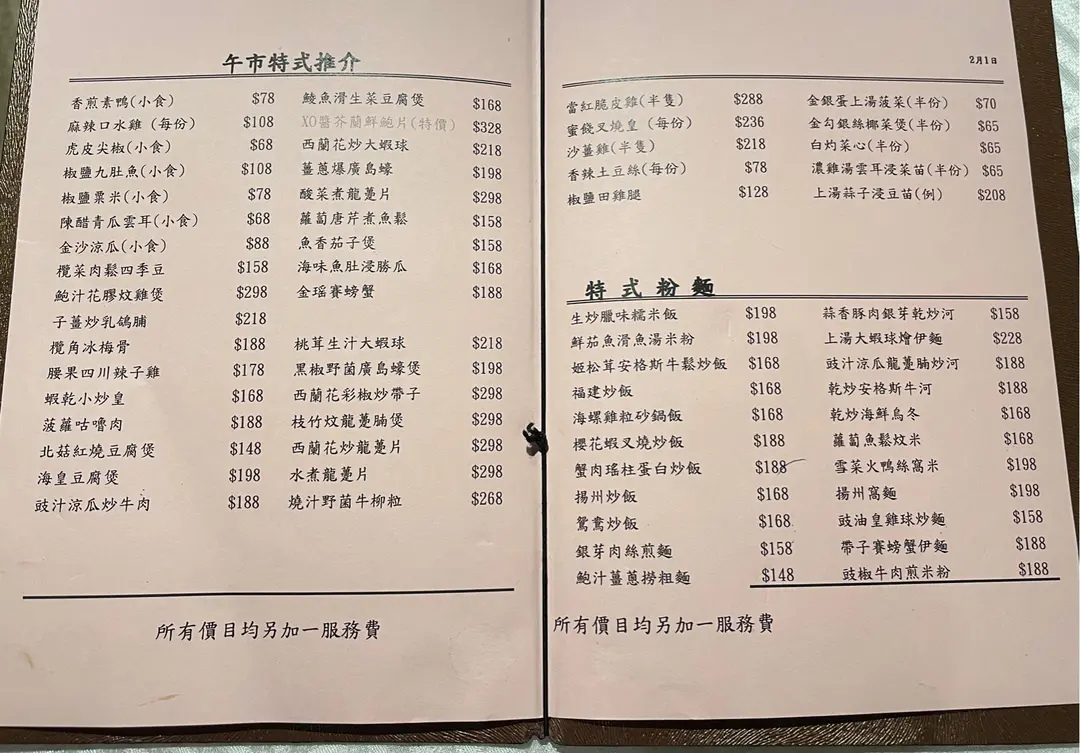 午市特式推介
香煎素鴨(小食) $78
麻辣口水雞 (每份) $108
虎皮尖椒(小食) $68
椒鹽九肚魚(小食) $108
椒鹽粟米(小食) $78
陳醋青瓜雲耳(小食) $68
金沙涼瓜(小食) $88
欖菜肉鬆四季豆 $158
鮑汁花膠炆雞煲 $298
子薑炒乳鴿脯 $218
欖角冰梅骨 $188
腰果四川辣子雞 $178
蝦乾小炒皇 $168
菠蘿咕嚕肉 $188
北菇紅燒豆腐煲 $148
海皇豆腐煲 $198
豉汁涼瓜炒牛肉 $188
鯪魚滑生菜豆腐煲 $168
XO醬芥蘭鮮鮑片(特價) $328
西蘭花炒大蝦球 $218
薑蔥爆廣島蠔 $198
酸菜煮龍躉片 $298
蘿蔔唐芹煮魚鬆 $158
魚香茄子煲 $158
海味魚肚浸勝瓜 $168
金瑤賽螃蟹 $188
桃茸生汁大蝦球 $218
黑椒野菌廣島蠔煲 $198
西蘭花彩椒炒帶子 $298
枝竹炆龍躉腩煲 $298
西蘭花炒龍躉片 $298
水煮龍躉片 $298
燒汁野菌牛柳粒 $268
所有價目均另加一服務費
2月1日
當紅脆皮雞(半隻) $288
蜜餞叉燒皇 (每份) $236
沙薑雞(半隻) $218
香辣土豆絲(每份) $78
椒鹽田雞腿 $128
金銀蛋上湯菠菜(半份) $70
金勾銀絲椰菜煲(半份) $65
白灼菜心(半份) $65
濃雞湯雲耳浸菜苗(半份) $65
上湯蒜子浸豆苗(例) $208
特式粉麵
生炒臘味糯米飯 $198
鮮茄魚滑魚湯米粉 $198
姬松茸安格斯牛鬆炒飯 $168
福建炒飯 $168
海螺雞粒砂鍋飯 $168
櫻花蝦叉燒炒飯 $188
蟹肉瑤柱蛋白炒飯 $188
揚州炒飯 $168
鴛鴦炒飯 $168
銀芽肉絲煎麵 $158
鮑汁薑蔥撈粗麵 $148
蒜香豚肉銀芽乾炒河 $158
上湯大蝦球燴伊麵 $228
豉汁涼瓜龍躉腩炒河 $188
乾炒安格斯牛河 $188
乾炒海鮮烏冬 $168
蘿蔔魚鬆炆米 $168
雪菜火鴨絲窩米 $198
揚州窩麵 $198
豉油皇雞球炒麵 $158
帶子賽螃蟹伊麵 $188
豉椒牛肉煎米粉 $188
所有價目均另加一服務費